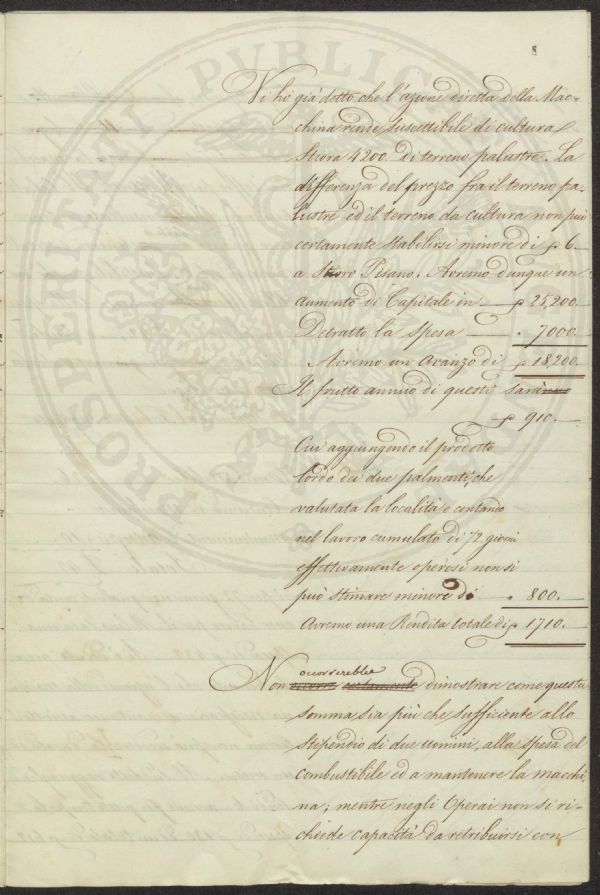 8
Vi ho già detto che l'azione diretta della Mac=
china rende suscettibile di cultura
Stiora 4200. di terreno palustre. La
differenza del prezzo fra il terreno pa=
lustre ed il terreno da cultura non può
certamente stabilirsi minore di £ 6.
a Stioro Pisano. Avremo dunque un
aumento di Capitale in — £ 25,200.
Detratto la spesa — " 7000.
Avremo un avanzo di £ 18,200.
Il frutto annuo di questi sarà
— £ 910. —
Cui aggiungendo il prodotto
lordo dei due palmenti, che
valutata la località e contando
nel lavoro cumulato di 72 giorni
effettivamente operosi non si
può stimare minore di " 800. —
Avremo una Rendita totale di £ 1710. —
occorrerebbe
Non dimostrare come questa
somma sia più che sufficiente allo
stipendio di due uomini, alla spesa del
combustibile ed a mantenere la macchi=
na; mentre negli Operai non si ri=
chiede capacità da retribuirsi con
PROSPERITATI PUBLIC